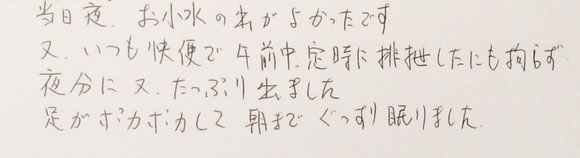 当日夜、お小水の出がよかったです
又、いつも快便で午前中、定時に排泄したにも拘らず
夜分に又、たっぷり出ました
足がポカポカして 朝まで ぐっすり眠りました。